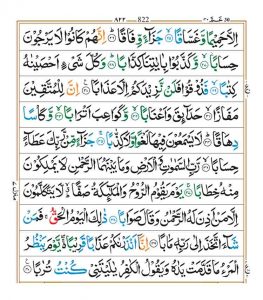 ۸۲۲ 822 عم ۳۰
اِلَّا حَمِیْمًا وَّ غَسَّاقًا جَزَآءً وِّفَاقًا اِنَّهُمْ كَانُوْا لَا یَرْجُوْنَ
حِسَابًا وَّ كَذَّبُوْا بِاٰیٰتِنَا كِذَّابًا وَ كُلَّ شَیْءٍ اَحْصَیْنٰهُ
كِتٰبًا فَذُوْقُوْا فَلَنْ نَّزِیْدَكُمْ اِلَّا عَذَابًا اِنَّ لِلْمُتَّقِیْنَ
مَفَازًا حَدَآىِٕقَ وَ اَعْنَابًا وَّ كَوَاعِبَ اَتْرَابًا وَّ كَاْسًا
دِهَاقًا لَا یَسْمَعُوْنَ فِیْهَا لَغْوًا وَّ لَا كِذّٰبًا جَزَآءً مِّنْ رَّبِّكَ عَطَآءً
حِسَابًا رَّبِّ السَّمٰوٰتِ وَ الْاَرْضِ وَ مَا بَیْنَهُمَا الرَّحْمٰنِ لَا یَمْلِكُوْنَ
مِنْهُ خِطَابًا یَوْمَ یَقُوْمُ الرُّوْحُ وَ الْمَلٰٓىِٕكَةُ صَفًّا لَّا یَتَكَلَّمُوْنَ
اِلَّا مَنْ اَذِنَ لَهُ الرَّحْمٰنُ وَ قَالَ صَوَابًا ذٰلِكَ الْیَوْمُ الْحَقُّ فَمَنْ
شَآءَ اتَّخَذَ اِلٰى رَبِّهٖ مَاٰبًا اِنَّاۤ اَنْذَرْنٰكُمْ عَذَابًا قَرِیْبًا یَّوْمَ یَنْظُرُ
الْمَرْءُ مَا قَدَّمَتْ یَدٰهُ وَ یَقُوْلُ الْكٰفِرُ یٰلَیْتَنِیْ كُنْتُ تُرٰبًا